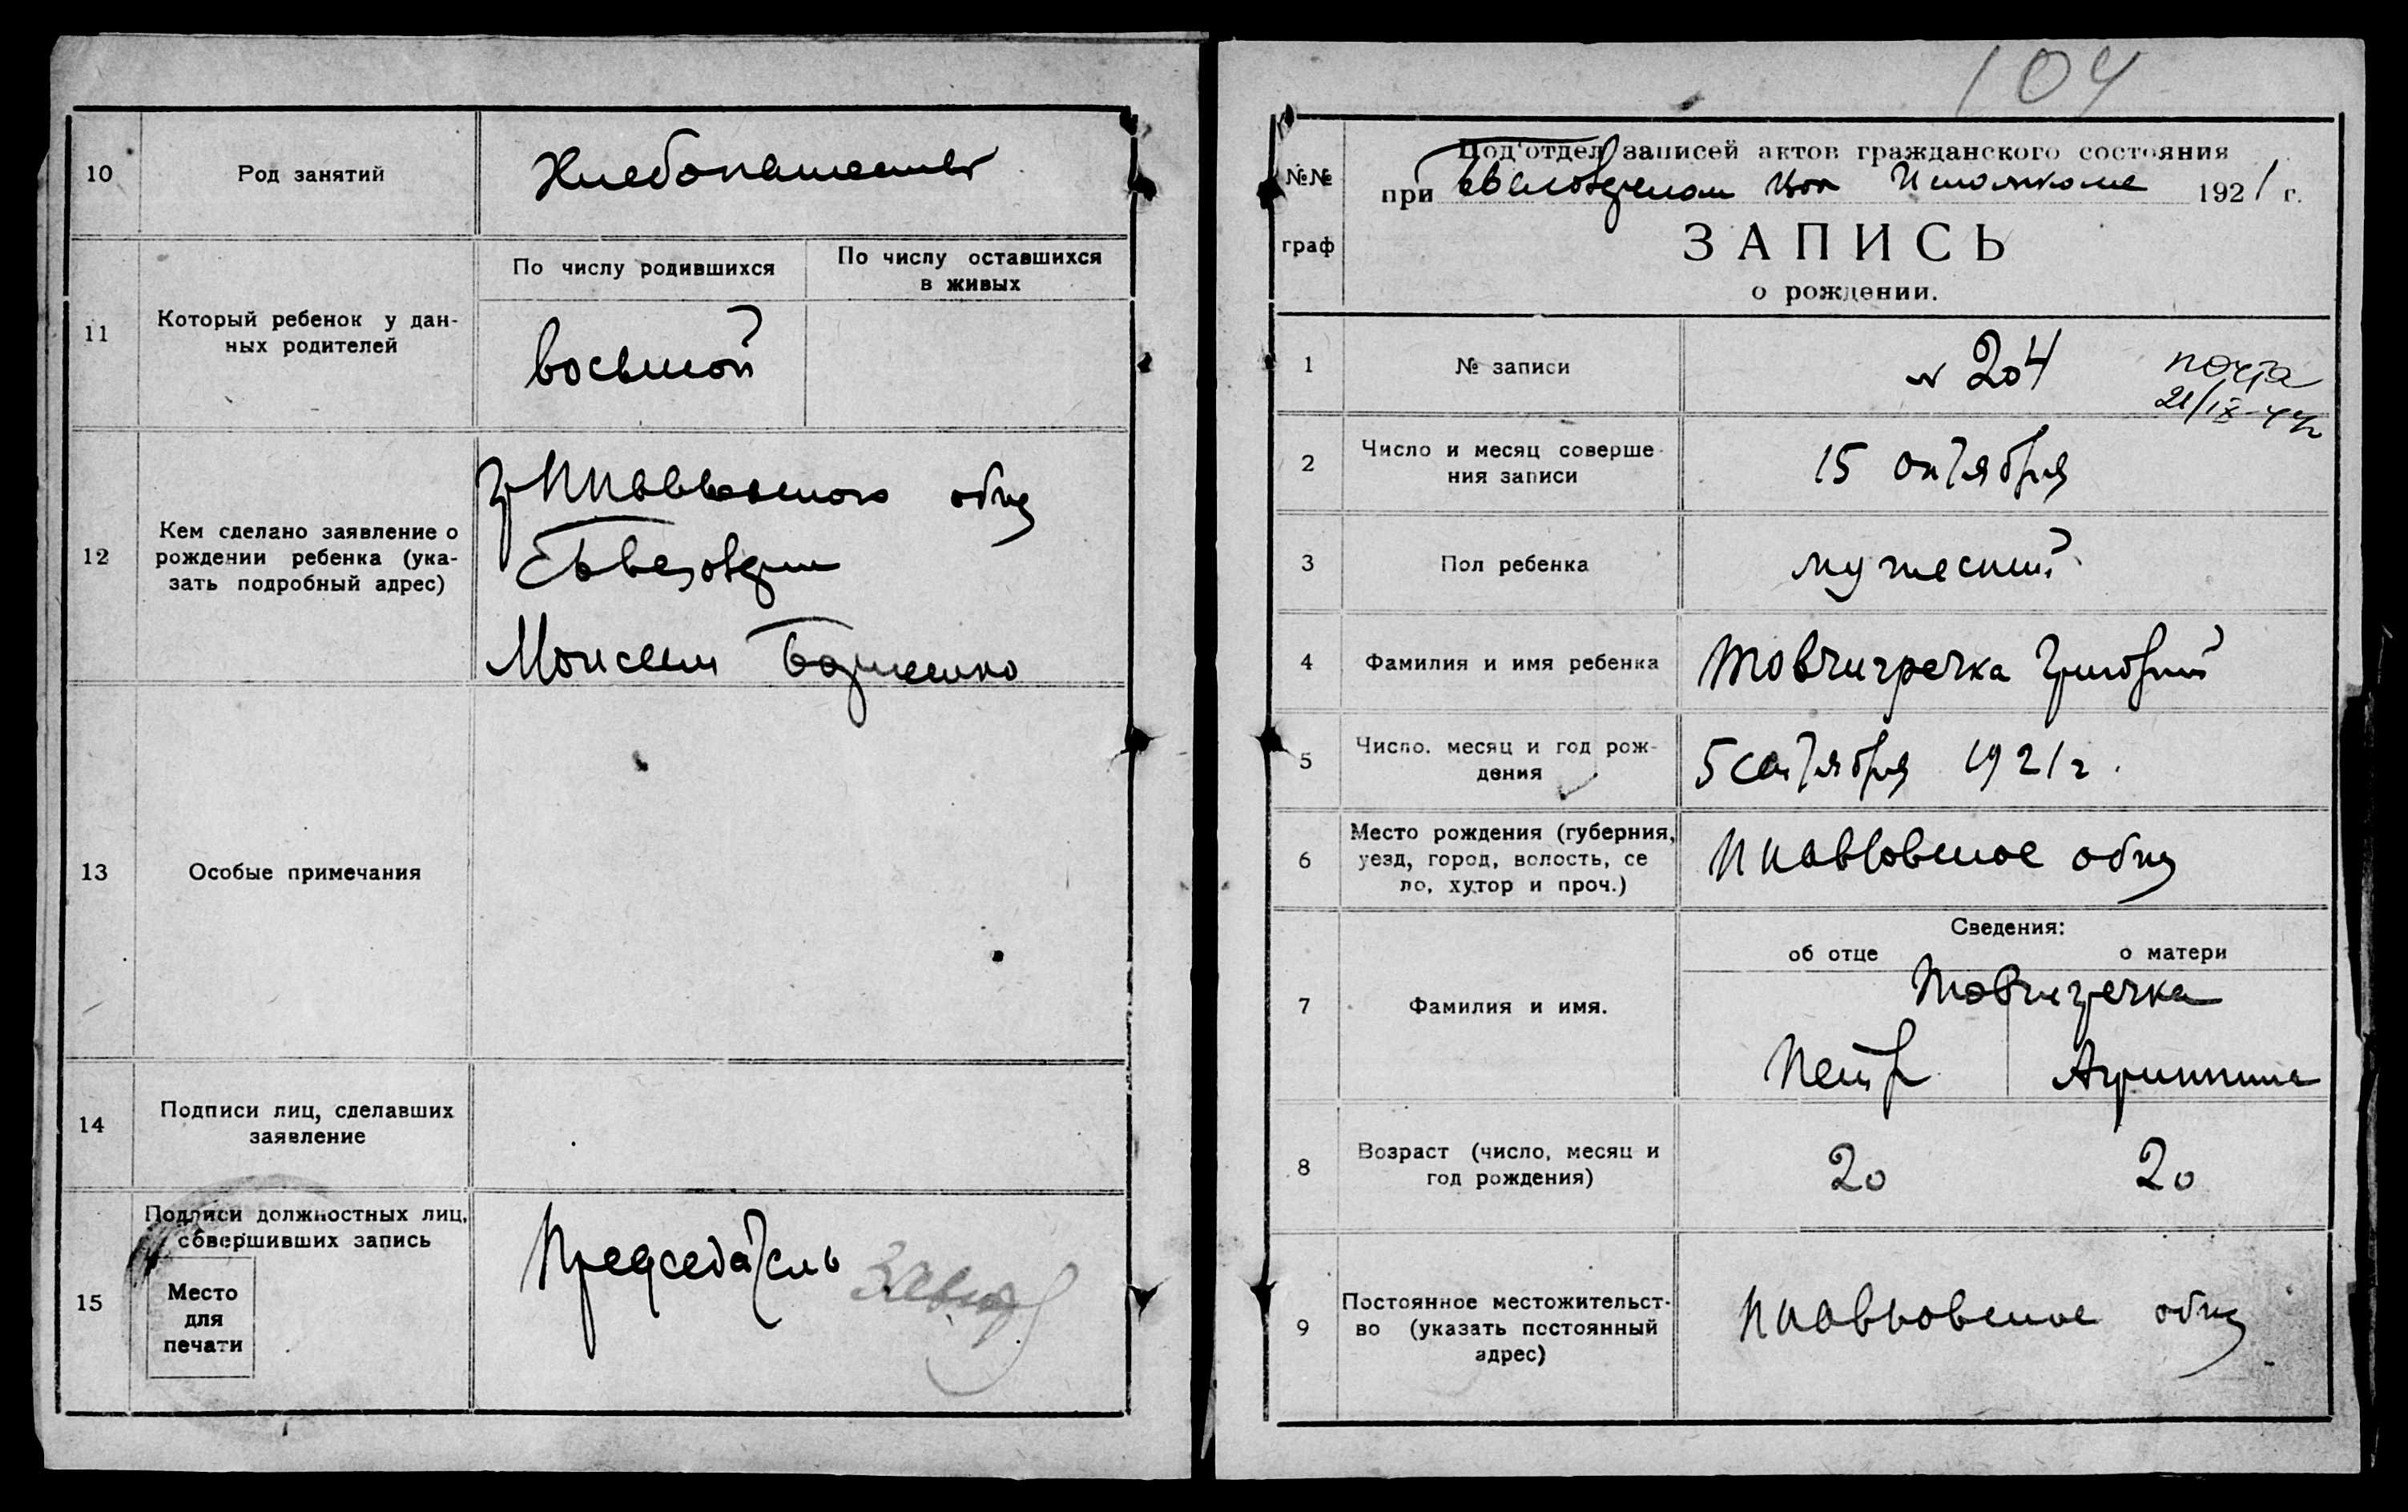 10
Род занятий
Хлебопашество
11
Который ребенок у дан-
ных родителей
По числу родившихся
По числу оставшихся
в живых
восьмой
12
Кем сделано заявление о
рождении ребенка (ука-
зать подробный адрес)
общ
Моисеем
13
Особые примечания
14
Подписи лиц, сделавших
заявление
15
Подписи должностных лиц,
совершивших запись
Место
для
печати
Председатель
104
№№
граф
Под'отдел записей актов гражданского состояния
при Исполкоме 1921 г.
ЗАПИСЬ
о рождении.
1
№ записи
№ 204
почта
21/IX-
2
Число и месяц соверше-
ния записи
15 октября
3
Пол ребенка
мужеский
4
Фамилия и имя ребенка
Товчигречка Григорий
5
Число. месяц и год рож-
дения
5 сентября 1921 г.
6
Место рождения (губерния,
уезд, город, волость, се
ло, хутор и проч.)
общ
Сведения:
об отце
о матери
7
Фамилия и имя.
Товчигречка
Петр
Агриппина
8
Возраст (число, месяц и
год рождения)
20
20
9
Постоянное местожительст-
во (указать постоянный
адрес)
общ